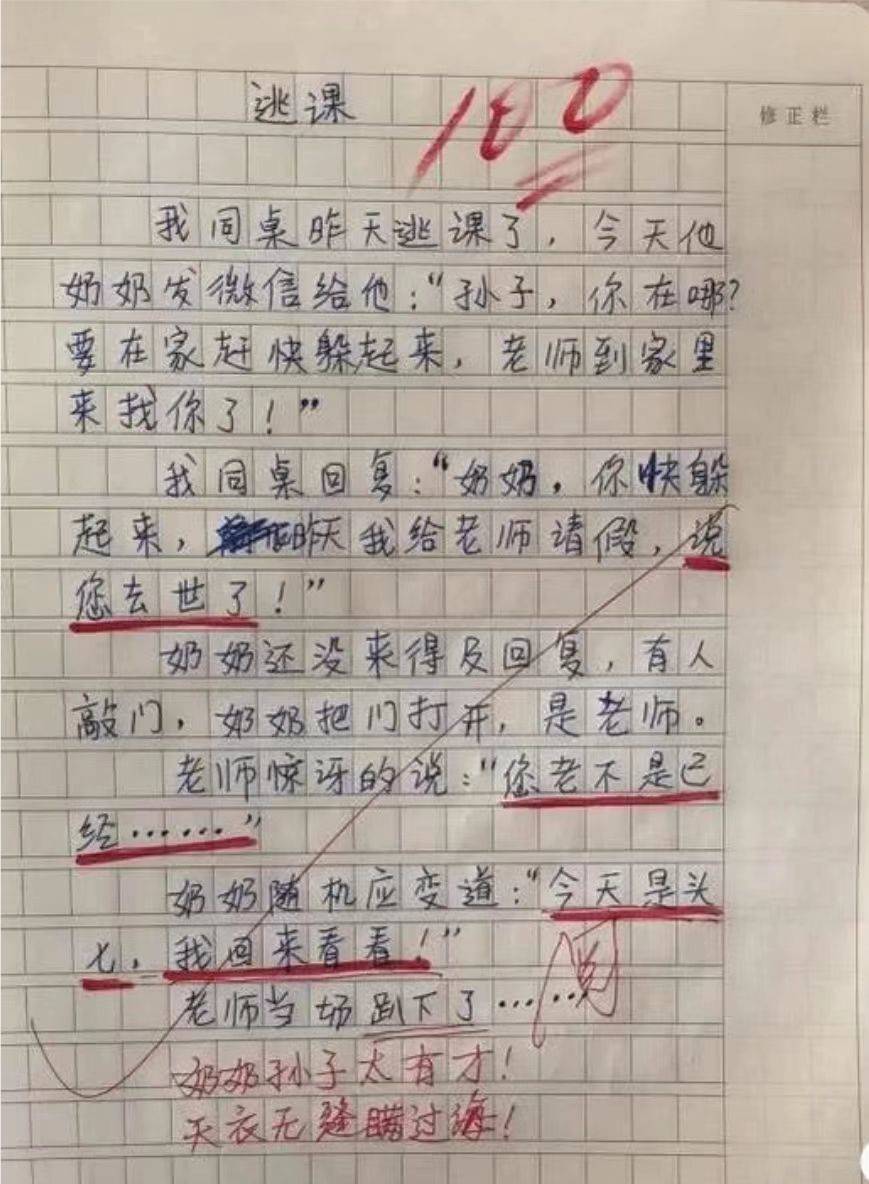 逃课
100
修正栏
我同桌昨天逃课了，今天他
奶奶发微信给他：“孙子，你在哪？
要在家赶快躲起来，老师到家里
来找你了！”
我同桌回复：“奶奶，你快躲
起来，昨天我给老师请假，说
您去世了！”
奶奶还没来得及回复，有人
敲门，奶奶把门打开，是老师。
老师惊讶的说：“您老不是已
经……”
奶奶随机应变道：“今天是头
七，我回来看看！”
老师当场趴下了……
阅
奶奶孙子太有才！
天衣无缝瞒过海！